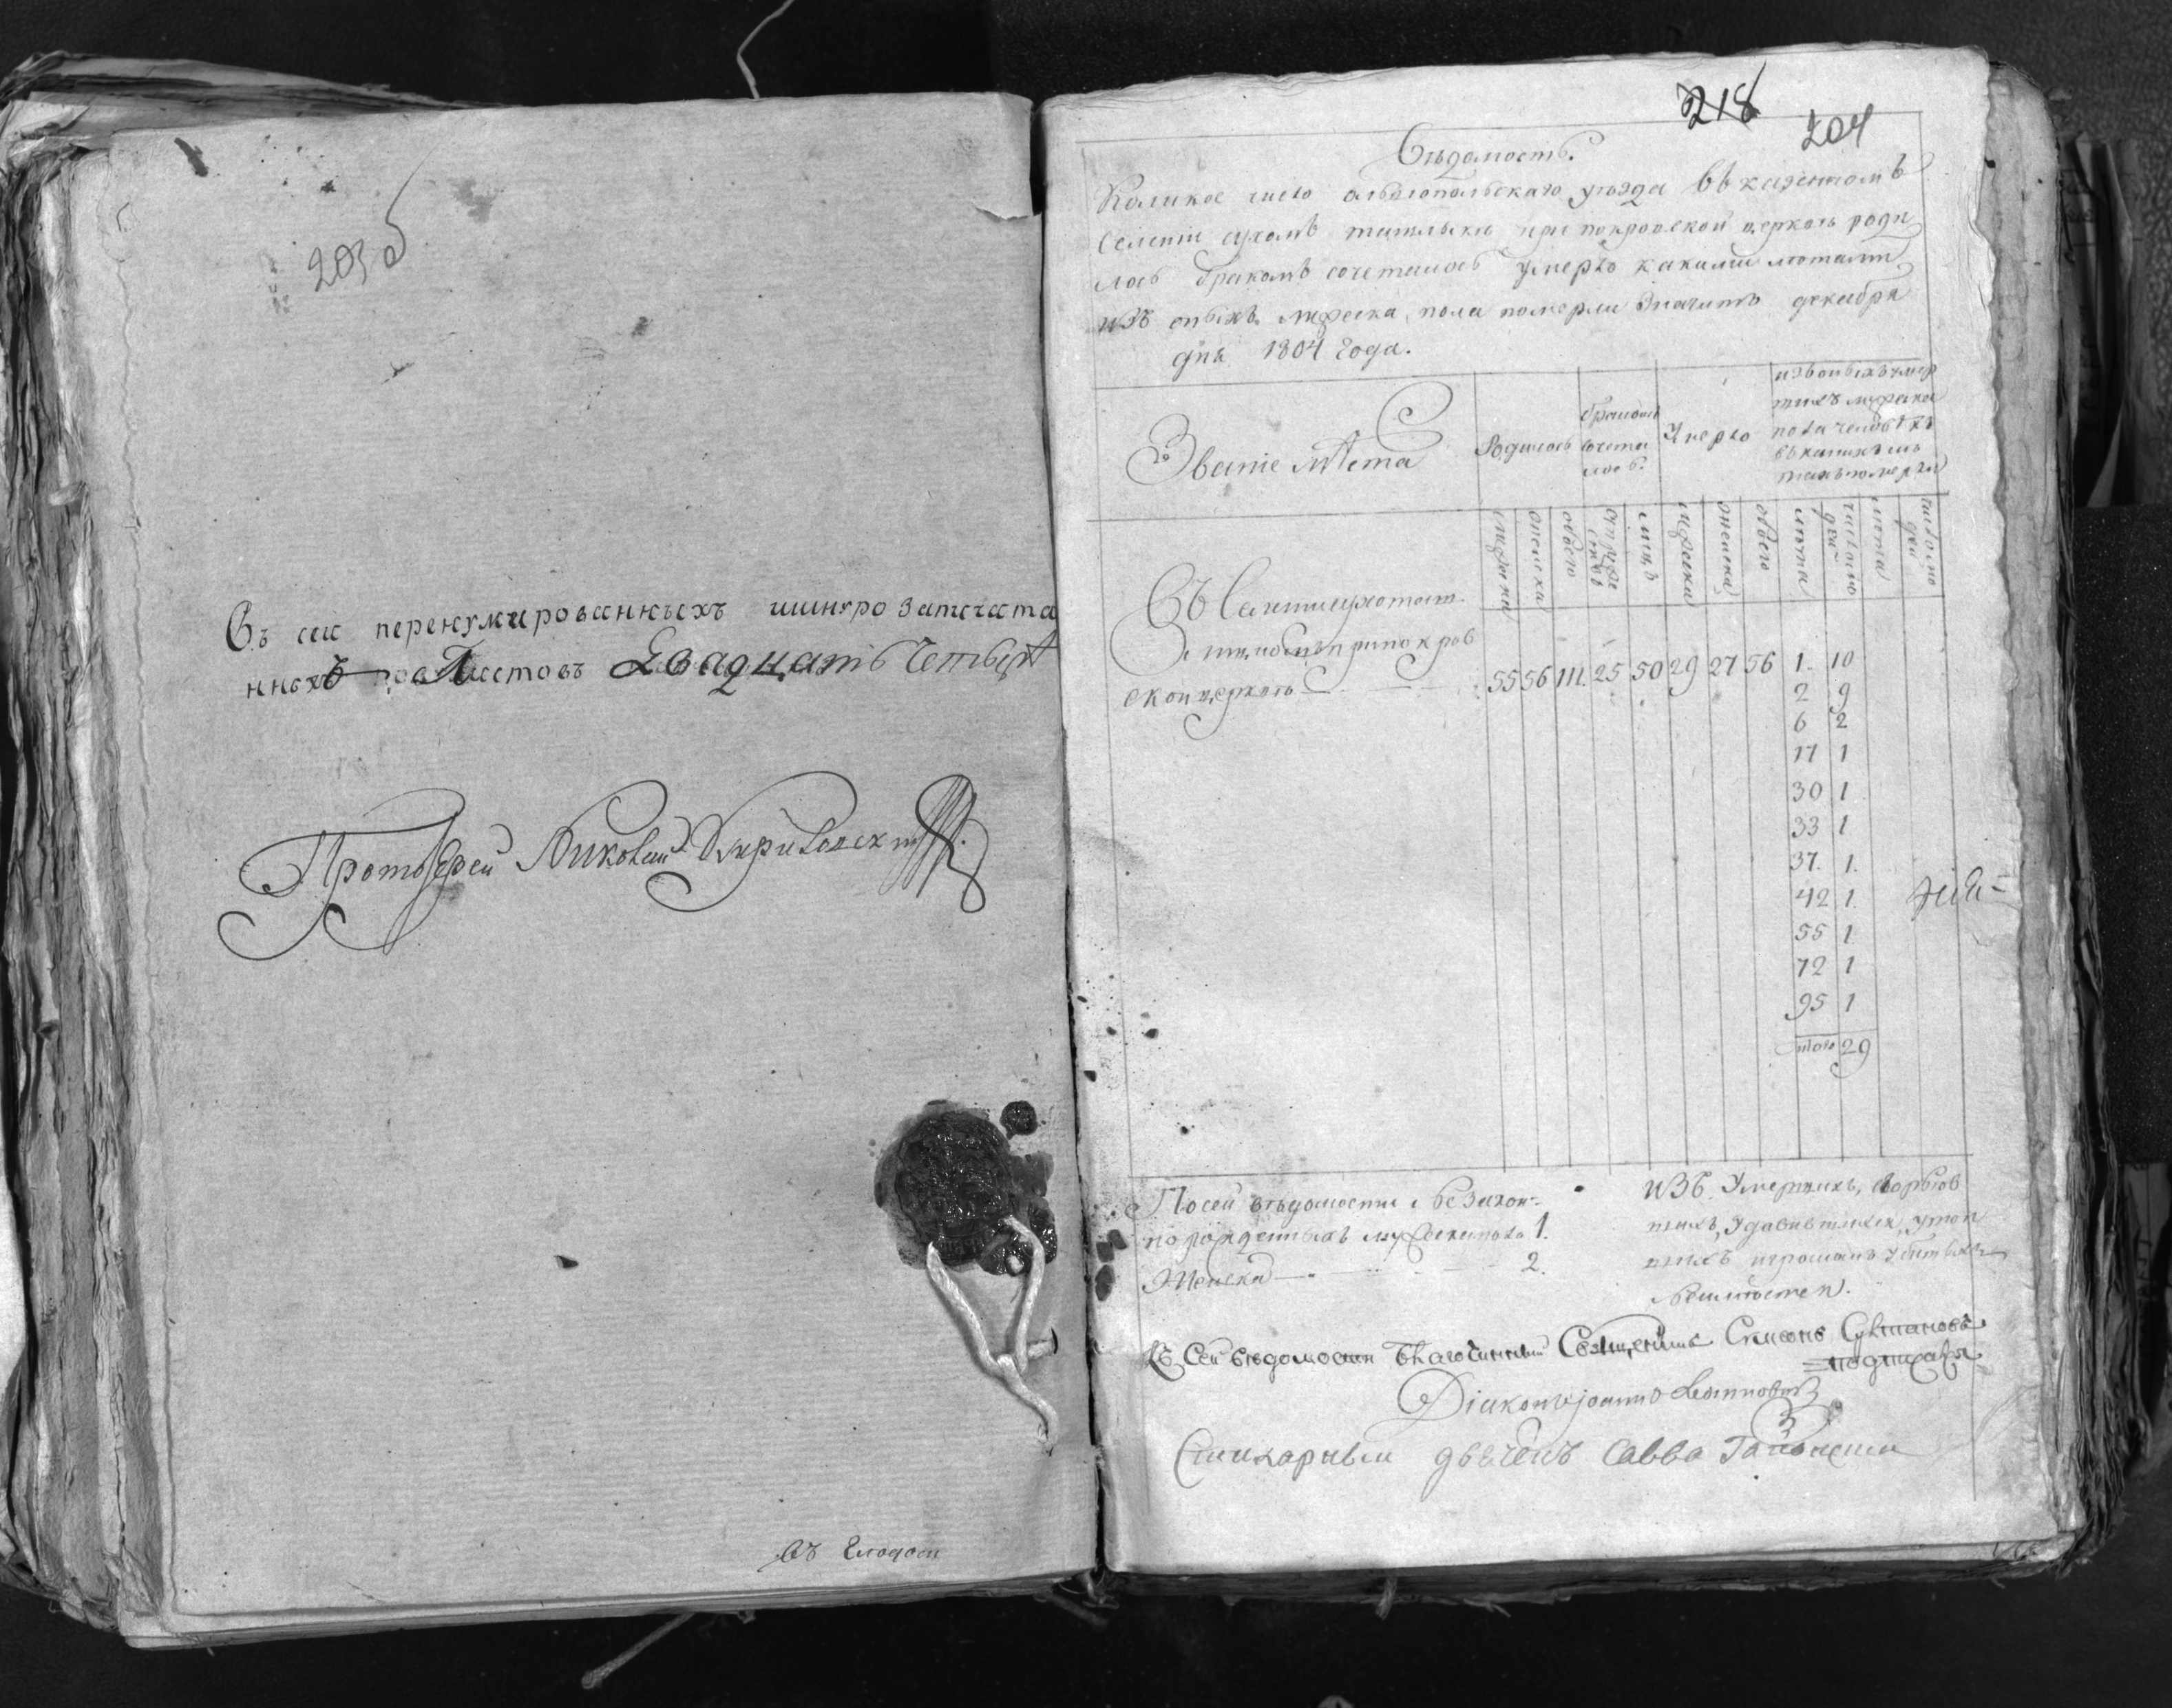 203 б
Въ сей перенумерованныхъ шнурозапечата
нныхъ листовъ Двадцать Четыре
Протоиерей Николай
въ
218
204
Вѣдомость.
Коликое число ольвиопольскаго уѣзда въ казенномъ
селеніи сухомъ ташлыкѣ при покровской церквѣ роди
лось бракомъ сочеталось умерло и какими лѣтами
изъ оныхъ мужеска пола померли значитъ декабря
дня 1804 года.
Званіе мѣста
Родилось
бракомъ
сочета
лось.
Умерло
изъ оныхъ умер
шихъ мужеска
пола человѣкъ
въ какихъ лѣ
тахъ померли
мужеска
женска
обоего
супруже
ствъ
лицъ
мужеска
женска
обоего
лѣта
число лю
дей
лѣта
число лю
дей
Въ селеніи сухомъ та
шлыкѣ при покров
ской церквѣ
55 56 111. 25 50 29 27 56 1. 10
2 9
6 2
17 1
30 1
33 1
37. 1.
42 1.
55 1
72 1
95 1
итого 29
По сей вѣдомости незакон-
но рожденныхъ мужеска пола 1.
Женска 2.
Изъ умершихъ, сгорѣв
шихъ, удавившихся, утоп
шихъ и громомъ убитыхъ
неимѣется.
Къ сей вѣдомости Благочинный Священникъ Симеонъ Султановъ
подписался
Діаконъ іоаннъ
Стихарный дьячекъ Савва